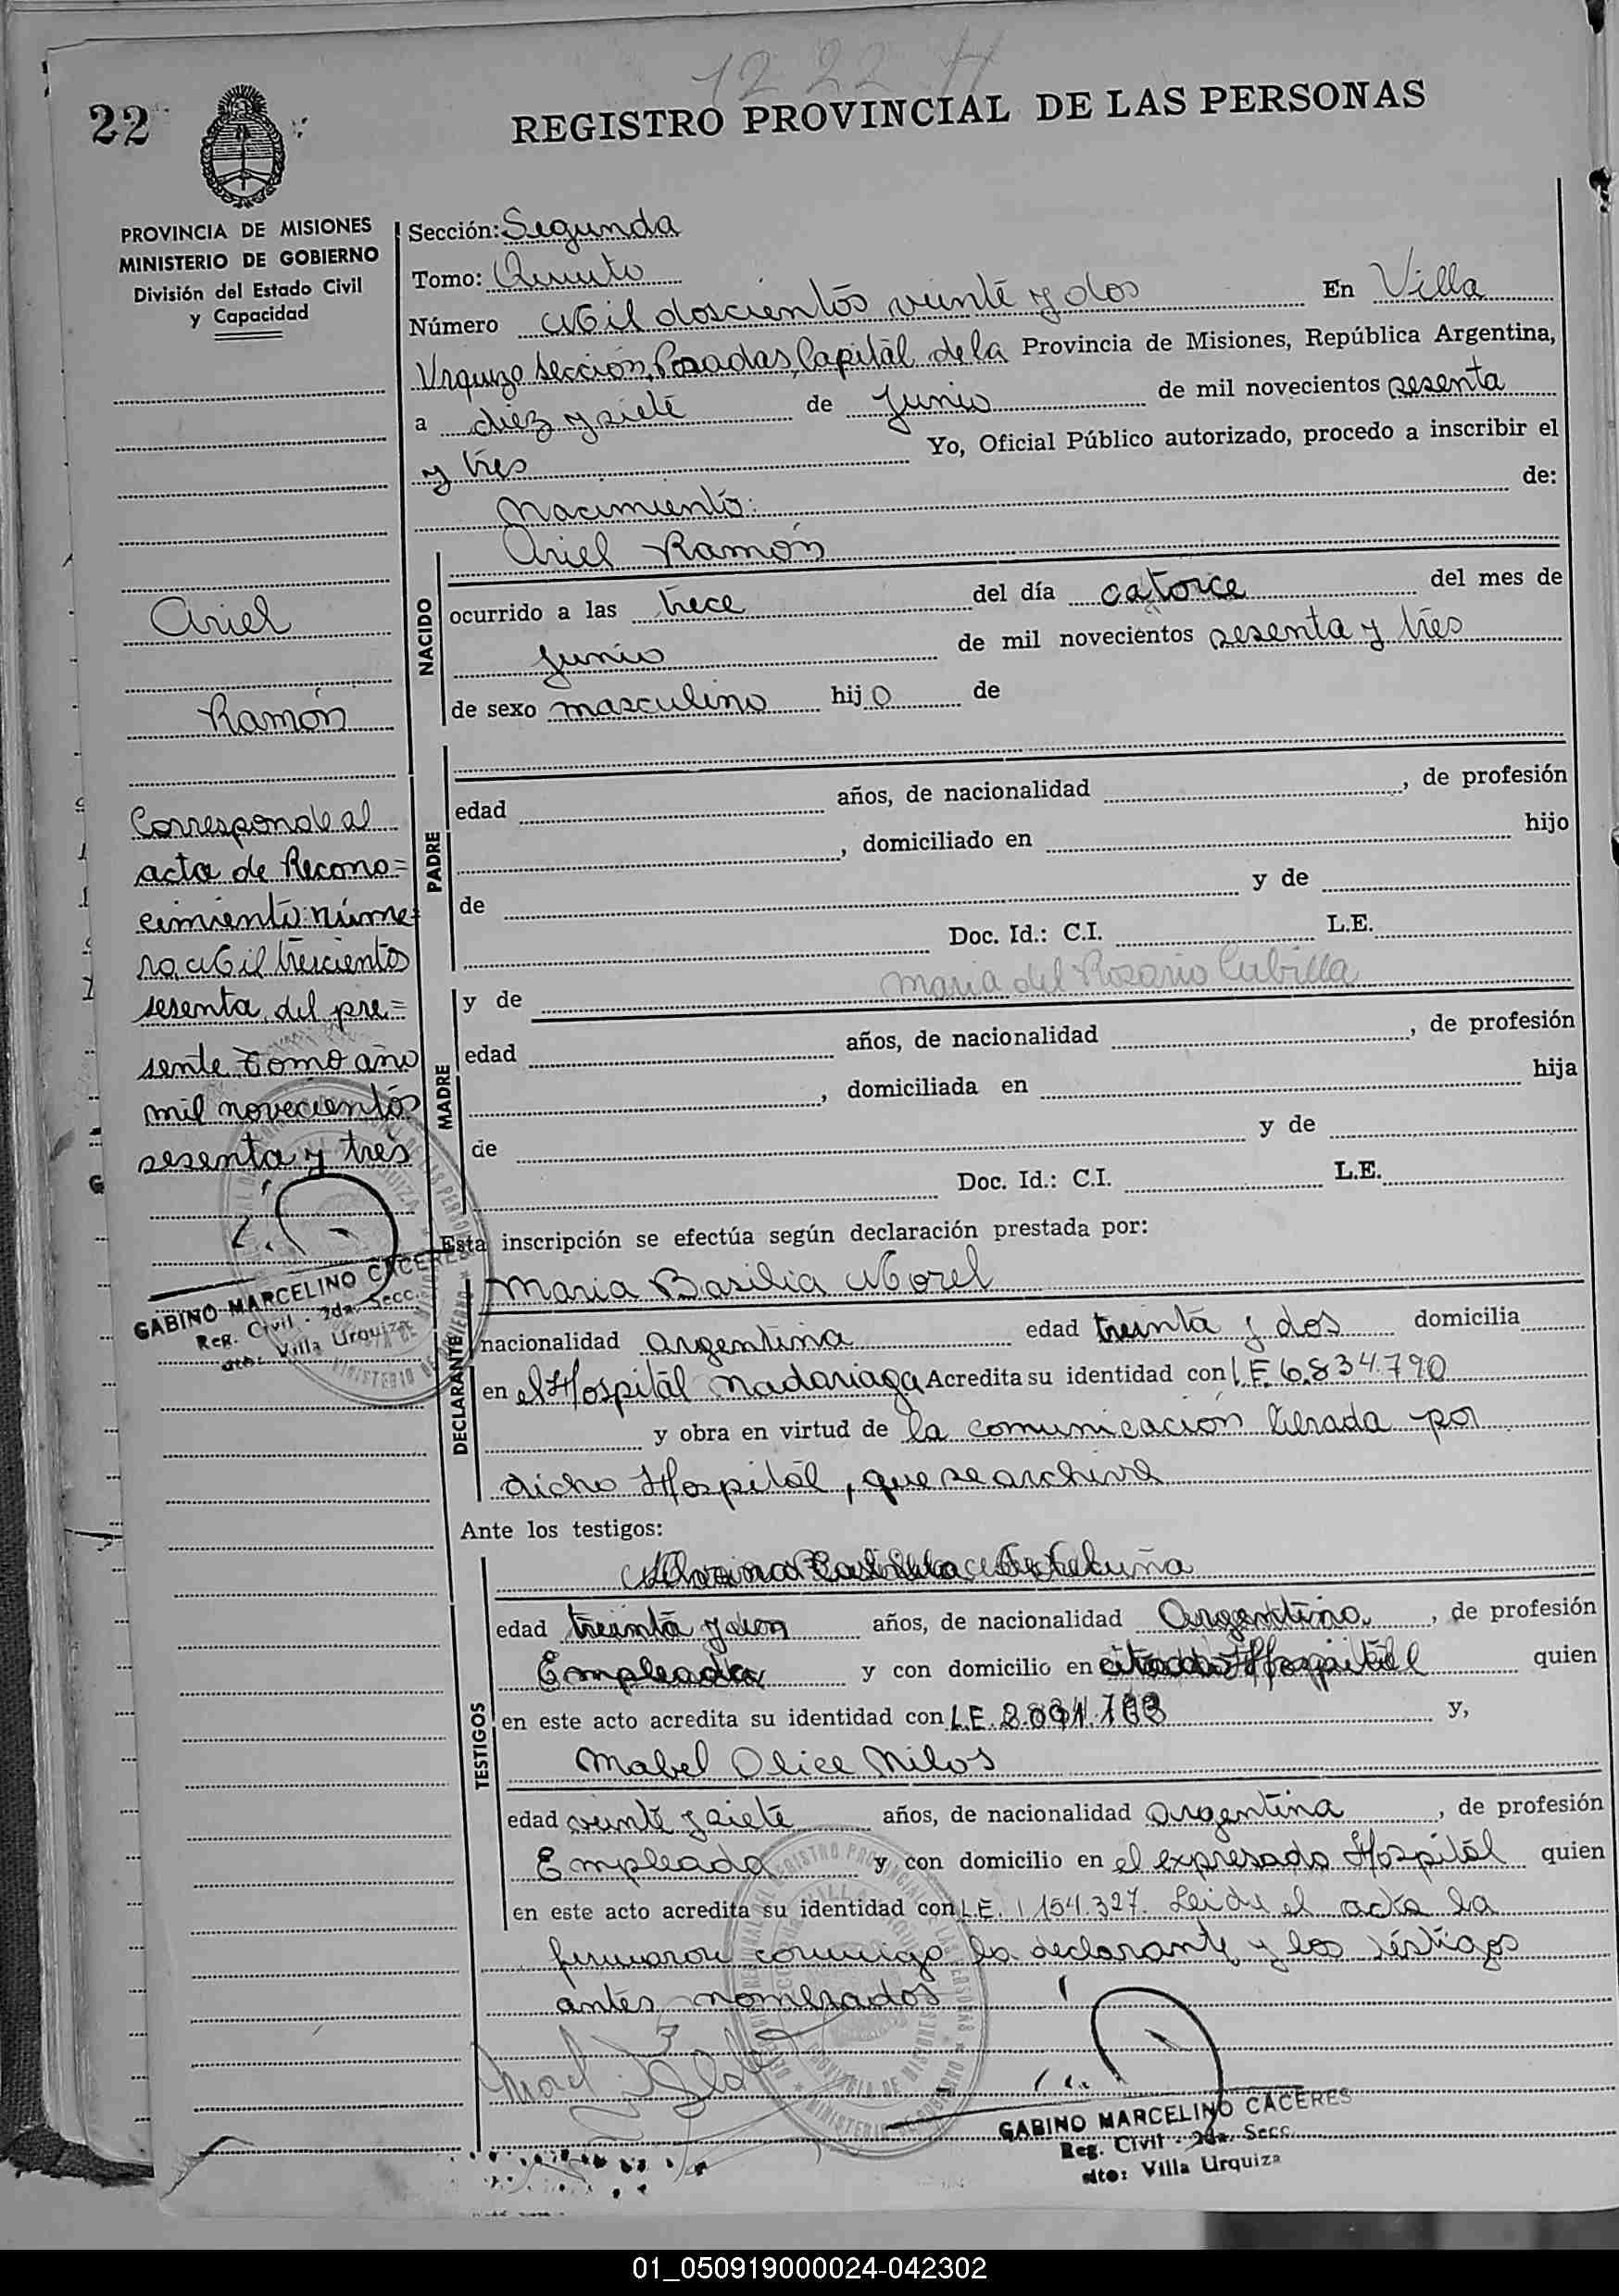 1222 H
22
REGISTRO PROVINCIAL DE LAS PERSONAS
PROVINCIA DE MISIONES
MINISTERIO DE GOBIERNO
División del Estado Civil
y Capacidad
Sección: Segunda
Tomo: Quinto
Número Mil doscientos veinte y dos En Villa
Urquiza Sección, Posadas, Capital de la Provincia de Misiones, República Argentina,
a diez y siete de Junio de mil novecientos sesenta
y tres Yo, Oficial Público autorizado, procedo a inscribir el
Nacimiento: de:
NACIDO
Ariel Ramón
ocurrido a las trece del día catorce del mes de
Junio de mil novecientos sesenta y tres
de sexo masculino hijo de
Ariel
Ramón
Corresponde al
acta de Recono=
cimiento número
ro, Mil trescientos
sesenta, del pre=
sente tomo año
mil novecientos
sesenta y tres
GABINO MARCELINO CACERES
Reg. Civil - 2da. Secc.
Villa Urquiza
PADRE
edad años, de nacionalidad , de profesión
, domiciliado en hijo
de y de
Doc. Id.: C.I. L.E.
MADRE
y de Maria del Rosario Cubilla
edad años, de nacionalidad , de profesión
, domiciliada en hija
de y de
Doc. Id.: C.I. L.E.
Esta inscripción se efectúa según declaración prestada por:
DECLARANTE
Maria Basilia Morel
nacionalidad argentina edad treinta y dos domicilia
en el Hospital Madariaga Acredita su identidad con L.E. 6.834.790
y obra en virtud de la comunicación librada por
dicho Hospital, que se archiva
Ante los testigos:
TESTIGOS
edad treinta y años, de nacionalidad Argentina, de profesión
Empleada y con domicilio en citado Hospital quien
en este acto acredita su identidad con L.E. y,
Mabel Olice Milos
edad veinte y siete años, de nacionalidad argentina, de profesión
Empleada y con domicilio en el expresado Hospital quien
en este acto acredita su identidad con L.E. 1.154.327. Leida el acta la
firmaron conmigo la declarante y los testigos
antes nombrados
GABINO MARCELINO CACERES
Reg. Civil - 2da. Secc.
Villa Urquiza
01_050919000024-042302